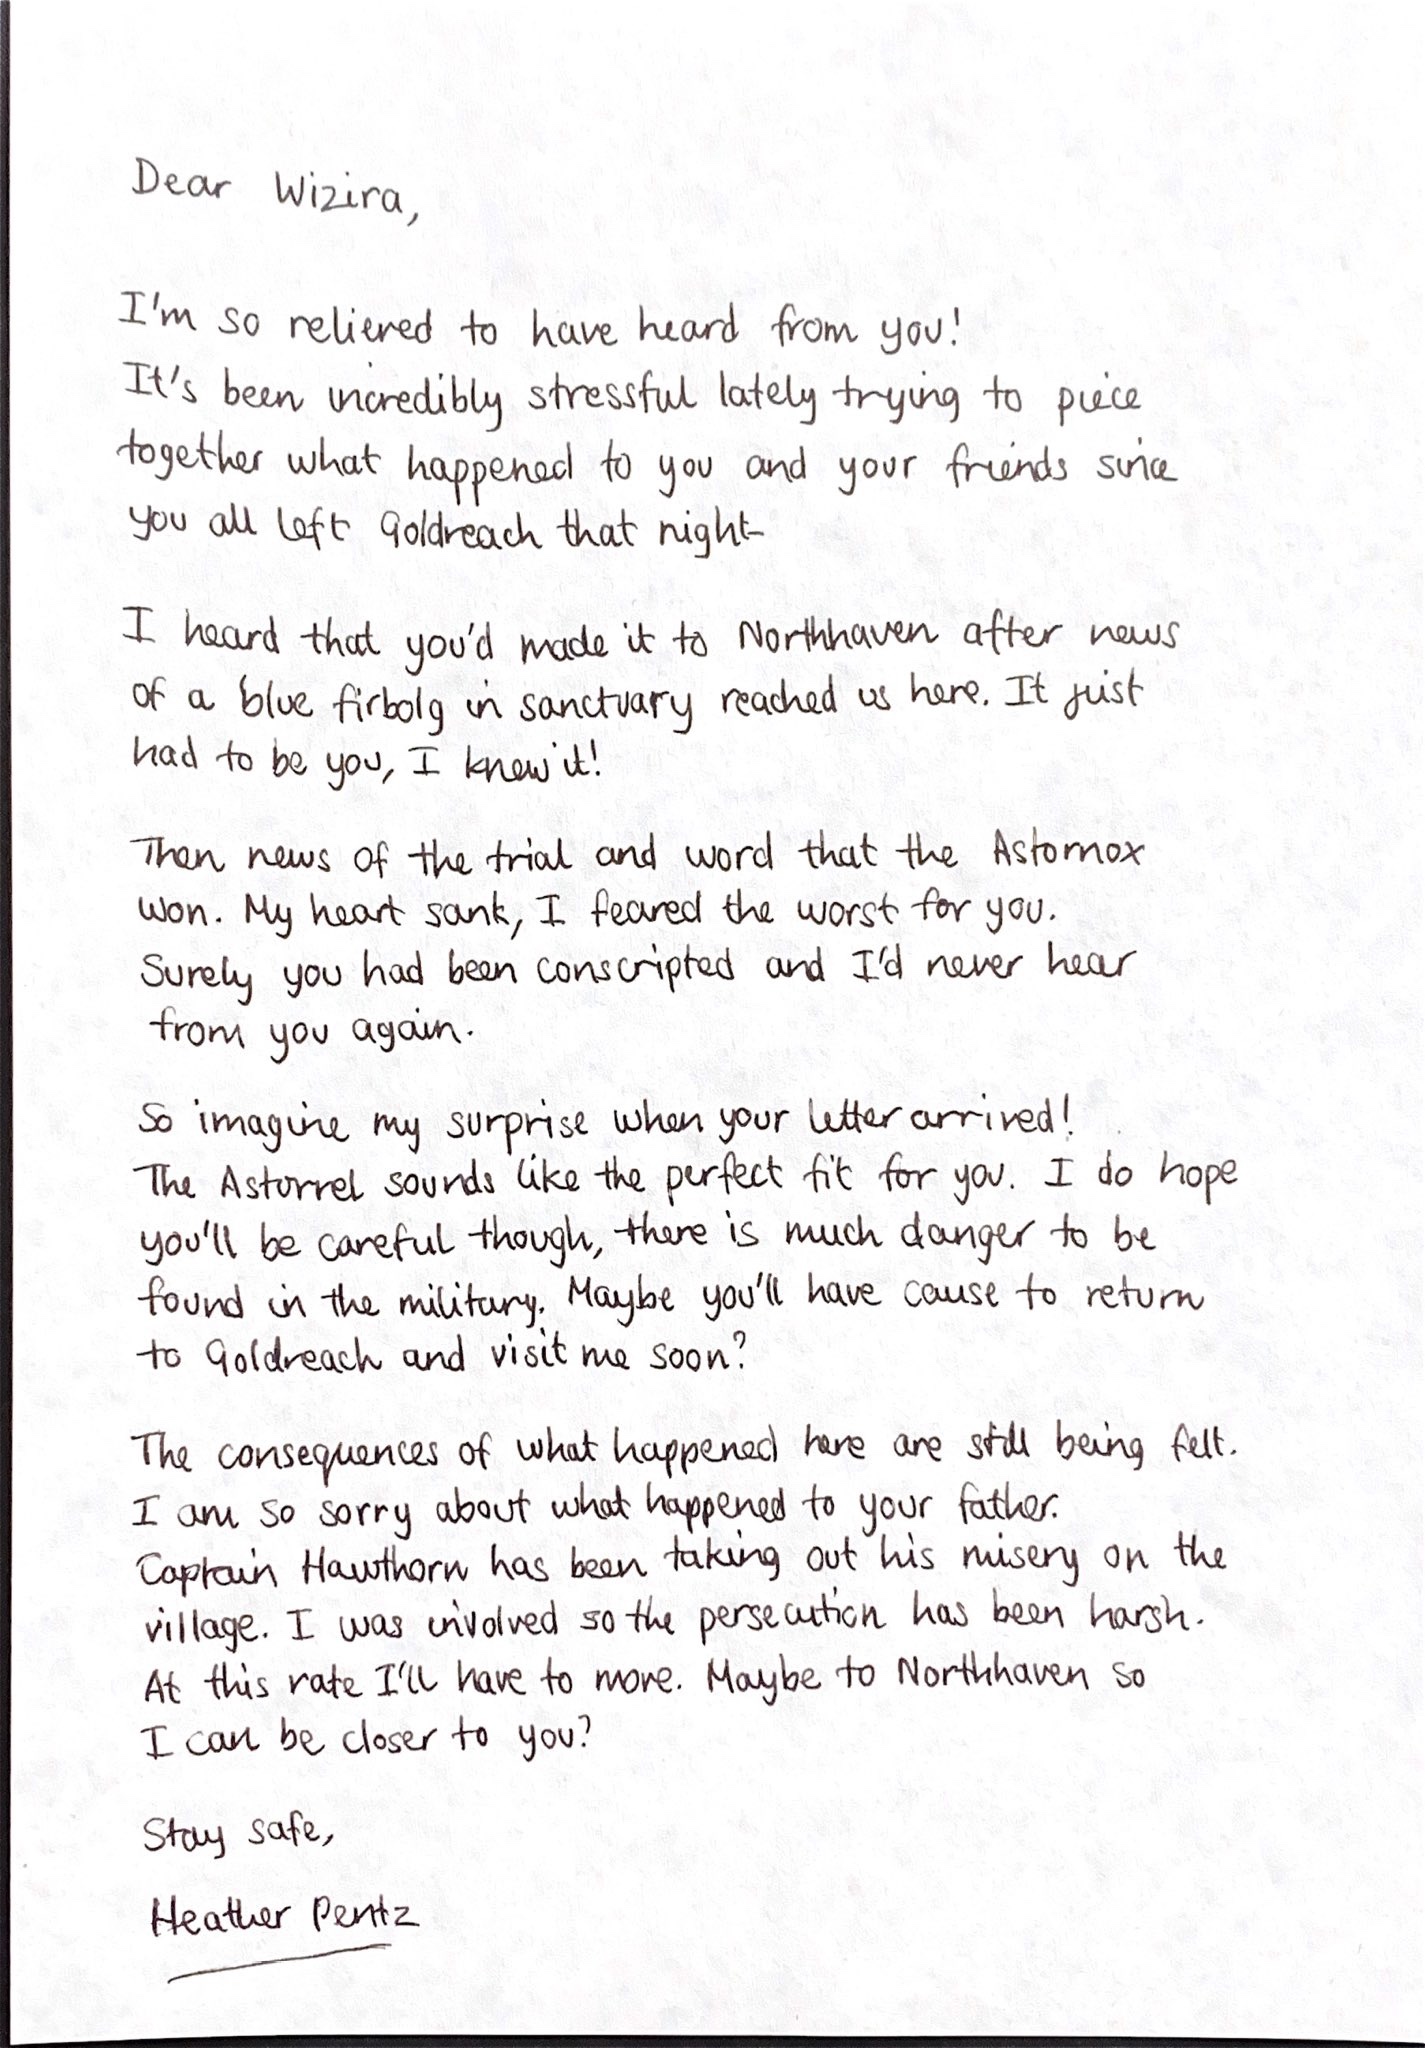 Dear Wizira,
I'm so relieved to have heard from you!
It's been incredibly stressful lately trying to piece
together what happened to you and your friends since
you all left Goldreach that night-
I heard that you'd made it to Northhaven after news
of a blue firbolg in sanctuary reached us here. It just
had to be you, I knew it!
Then news of the trial and word that the Astornox
won. My heart sank, I feared the worst for you.
Surely you had been conscripted and I'd never hear
from you again.
So imagine my surprise when your letter arrived!
The Astorrel sounds like the perfect fit for you. I do hope
you'll be careful though, there is much danger to be
found in the military. Maybe you'll have cause to return
to Goldreach and visit me soon?
The consequences of what happened here are still being felt.
I am so sorry about what happened to your father.
Captain Hawthorn has been taking out his misery on the
village. I was involved so the persecution has been harsh.
At this rate I'll have to move. Maybe to Northhaven so
I can be closer to you?
Stay safe,
Heather Pentz